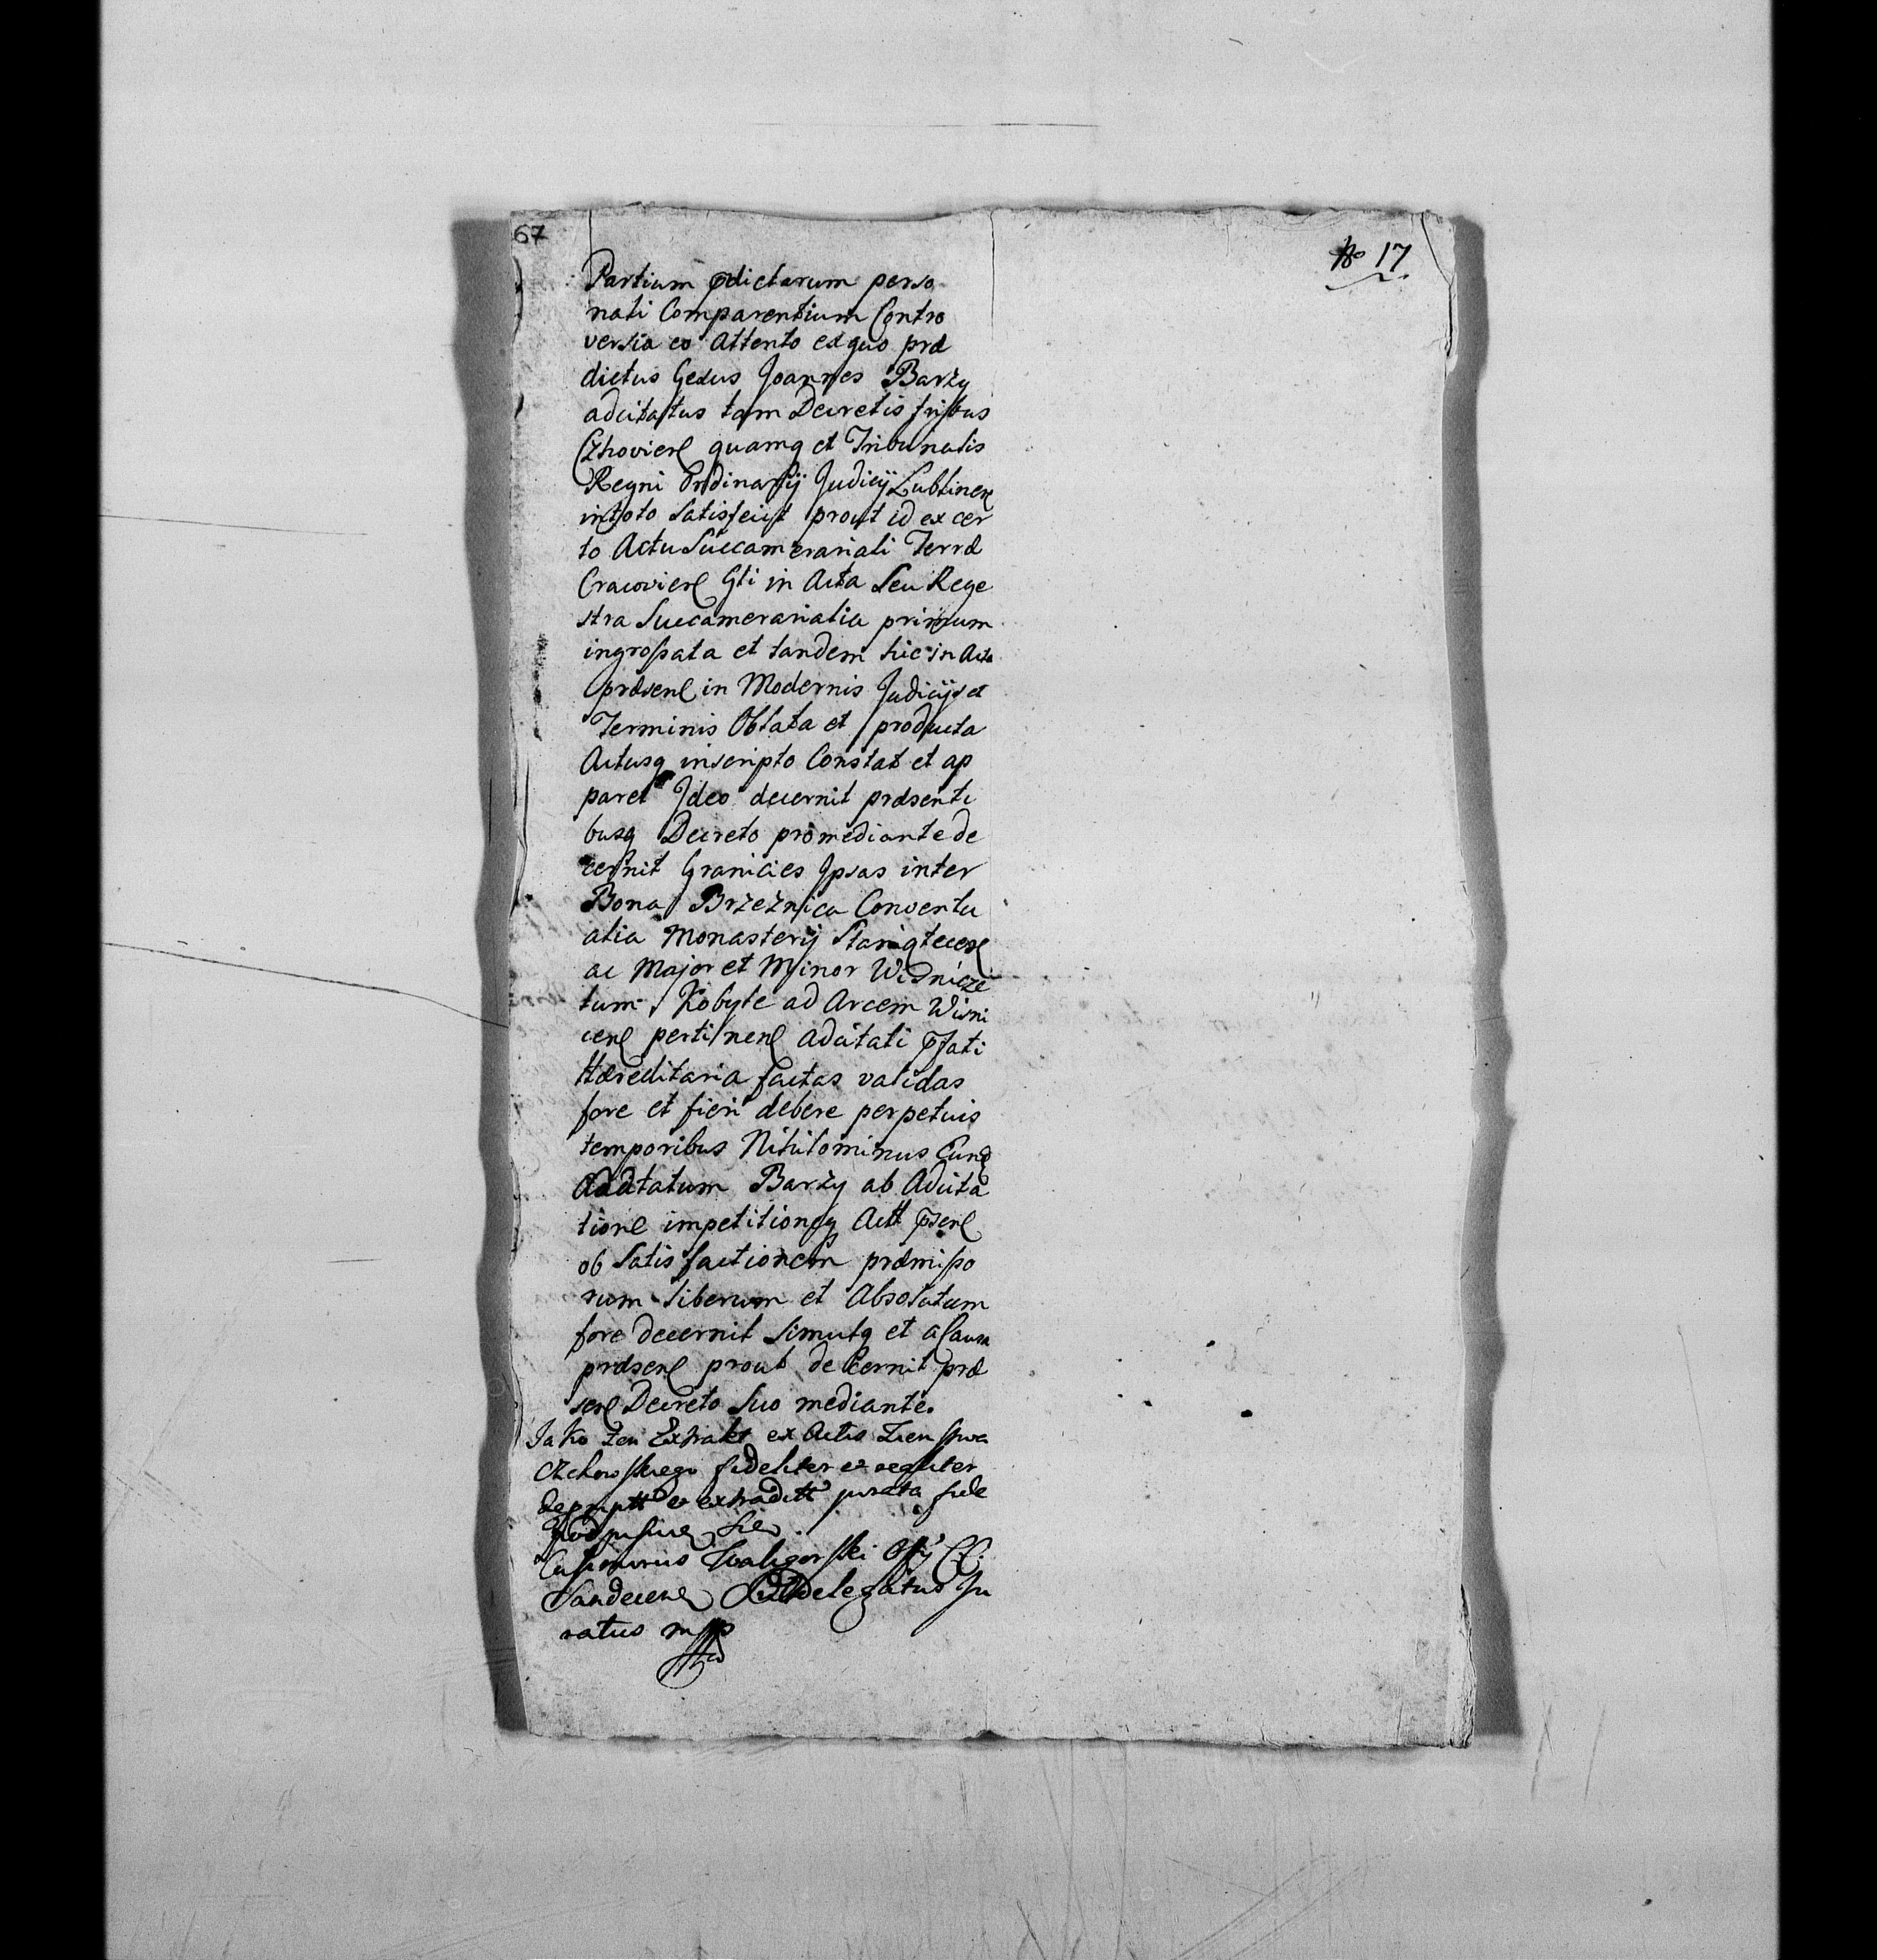 67
No 17
Partium pdictarum perso
nati Comparentium Contro
versia eo Attento ex quo præ
dictus Gesus Joannes Barzy
adcitatus tam Decretis fribus
Czhoviens quamq et Tribunalis
Regni Ordinarij Judicij Lublinens
in toto satisfecit prout id ex cer
to Actu Succamerariali Terræ
Cracoviens Gti in Acta seu Rege
stra Succamerarialia primum
ingrossata et tandem hic in Acta
præsens in Modernis Judicijs et
Terminis Oblata et producta
Actusq inscripto Constat et ap
paret Ideo decernit præsenti
busq Decreto pro mediante de
cernit Granicies Ipsas inter
Bona Brzeznica Conventu
alia Monasterij Starigtecens
ac Major et Minor Wisnicze
tum Kobyle ad Arcem Wisni
cens pertinens adcitati pfati
Hæreditaria factas validas
fore et fieri debere perpetuis
temporibus Nihilominus Eund
Adcitatum Barzy ab Adcita
tione impetitionq Actt psens
ob Satisfactionem præmisso
rum liberum et Absolutum
fore decernit simulq et a Causa
præsens prout decernit præ
sens Decreto suo mediante.
Jako ten Extrakt ex Actis Zienstwa
Czchowskiego fideliter et regulter
depromptt et extraditt jurata fide
podpisuię się
Casimirus Waligorski Offij CC.
Sandecens Subdelegatus Ju
ratus mpp